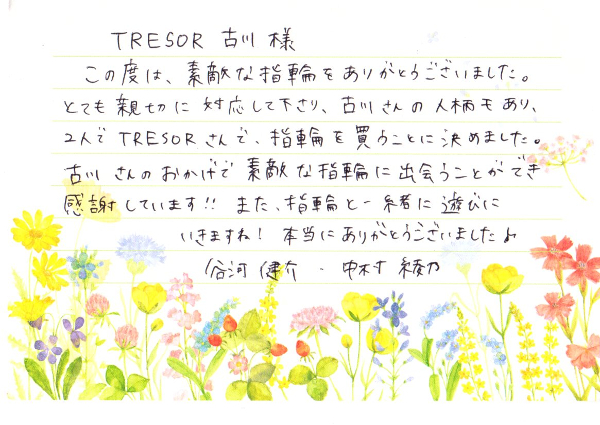 TRESOR 古川 様
この度は、素敵な指輪をありがとうございました。
とても親切に対応して下さり、古川さんの人柄もあり、
2人で TRESORさんで、指輪を買うことに決めました。
古川さんのおかげで素敵な指輪に出会うことができ
感謝しています!! また、指輪と一緒に遊びに
いきますね! 本当にありがとうございました♪
谷河 健介 ・ 中村 綾乃